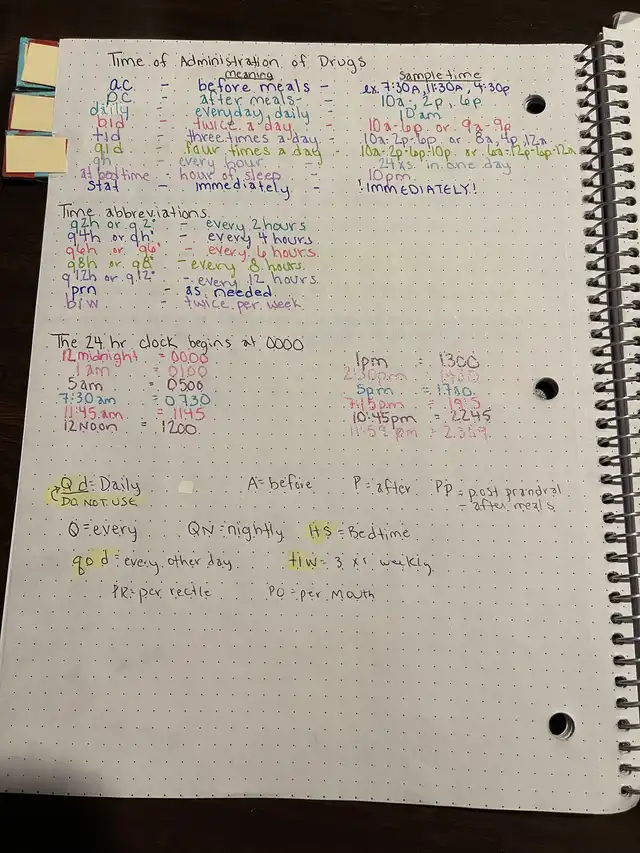 Time of Administration of Drugs
meaning Sample time
ac - before meals - ex. 7:30A, 11:30A, 4:30p
pc - after meals - 10a, 2p, 6p
daily - everyday, daily - 10am
bid - twice a day - 10a-6p or 9a-9p
tid - three times a day - 10a-2p-6p or 8a, 4p, 12a
qid - four times a day - 10a-2p-6p-10p or 6a-12p-6p-12a
qh - every hour - 24 xs in one day
at bedtime - hour of sleep - 10pm
stat - immediately - !IMMEDIATELY!
Time abbreviations
q2h or q2° - every 2 hours
q4h or - every 4 hours
q6h or q6° - every 6 hours
q8h or q8° - every 8 hours
q12h or q12° - every 12 hours
prn - as needed
b/w - twice per week
The 24 hr clock begins at 0000
12 midnight = 0000 1pm = 1300
1 am = 0100 2:30pm = 1430
5am = 0500 5pm =
7:30am = 0730 7:15pm =
11:45am = 1145 10:45pm = 2245
12 Noon = 1200 11:59 pm = 2359
Qd = Daily A = before P = after PP = post prandral
DO NOT USE - after meals
Q = every QN = nightly HS = Bedtime
qod = every other day tiw = 3 xs weekly
PR = per rectle PO = per mouth